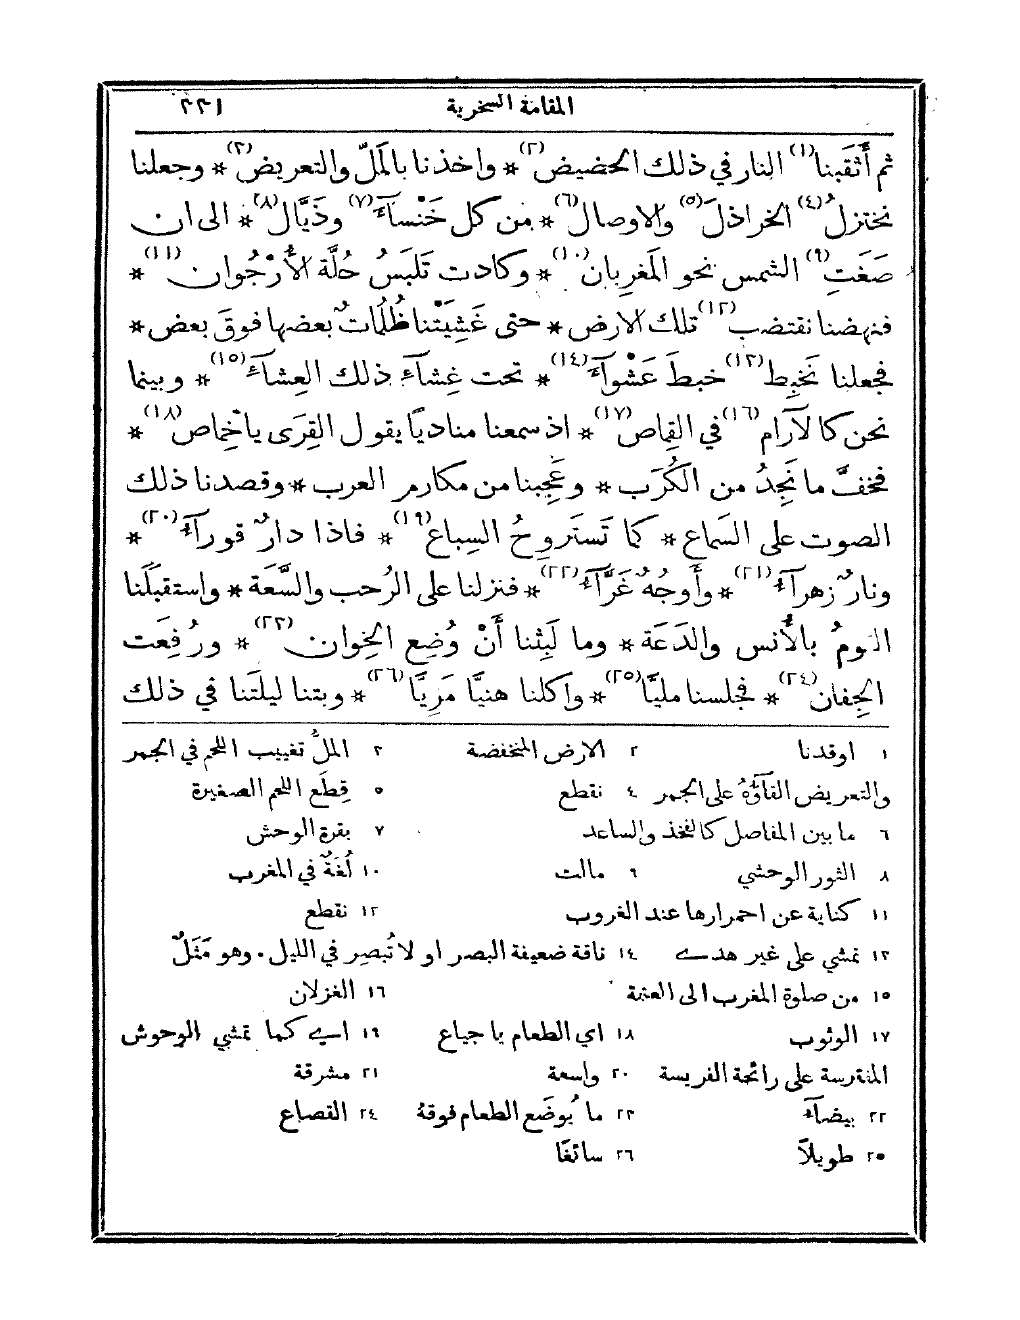 المقامة السخرية ٢٢١
ثم أَثقَبنا(١) النار في ذلك الحضيض(٢) * واخذنا بالمَلّ والتعريض(٣) * وجعلنا
نختزلُ(٤) الخراذلَ(٥) والاوصال(٦) * من كل خَنْسآءَ(٧) وذَيَّال(٨) * الى ان
صَغَتِ(٩) الشمس نحو المَغرِبان(١٠) * وكادت تَلبَسُ حُلَّة الأُرْجُوان(١١) *
فنهضنا نقتضب(١٢) تلك الارض * حتى غَشِيَتْنا ظُلُماتٌ بعضها فوقَ بعض *
فجعلنا نَخبِط(١٣) خبطَ عَشْوآءَ(١٤) * تحت غِشآءِ ذلك العِشآءِ(١٥) * وبينما
نحن كالآرام(١٦) في القِماص(١٧) * اذ سمعنا منادياً يقول القِرَى ياخِماص(١٨) *
فخفَّ ما نَجِدُ من الكُرَب * وعَجِبنا من مكارم العرب * وقصدنا ذلك
الصوت على السَماع * كما تَستَروِحُ السِباع(١٩) * فاذا دارٌ قورآءُ(٢٠) *
ونارٌ زهرآءُ(٢١) * وأَوجُهٌ غَرَّآءُ(٢٢) * فنزلنا على الرُحب والسَّعَة * واستقبلَنا
اليومُ بالأُنس والدَعَة * وما لَبِثْنا أَنْ وُضِع الخِوان(٢٣) * ورُفِعَت
الجِفان(٢٤) * فجلسنا مليًّا(٢٥) * واكلنا هنيًّا مَرِيًّا(٢٦) * وبتنا ليلتَنا في ذلك
١ اوقدنا ٢ الارض المنخفضة ٣ الملُّ تغييب اللحم في الجمر
والتعريض القآؤُهُ على الجمر ٤ نقطع ٥ قِطَع اللحم الصغيرة
٦ ما بين المفاصل كالفخذ والساعد ٧ بقرة الوحش
٨ الثور الوحشي ٩ مالت ١٠ لُغةٌ في المغرب
١١ كناية عن احمرارها عند الغروب ١٢ نقطع
١٣ نمشي على غير هدى ١٤ ناقة ضعيفة البصر او لا تُبصِر في الليل. وهو مَثَلٌ
١٥ من صلوة المغرب الى العتمة ١٦ الغزلان
١٧ الوثوب ١٨ اي الطعام يا جياع ١٩ اي كما تمشي الوحوش
المفترسة على رائحة الفريسة ٢٠ واسعة ٢١ مشرقة
٢٢ بيضآءُ ٢٣ ما يُوضَع الطعام فوقهُ ٢٤ القصاع
٢٥ طويلًا ٢٦ سائغًا